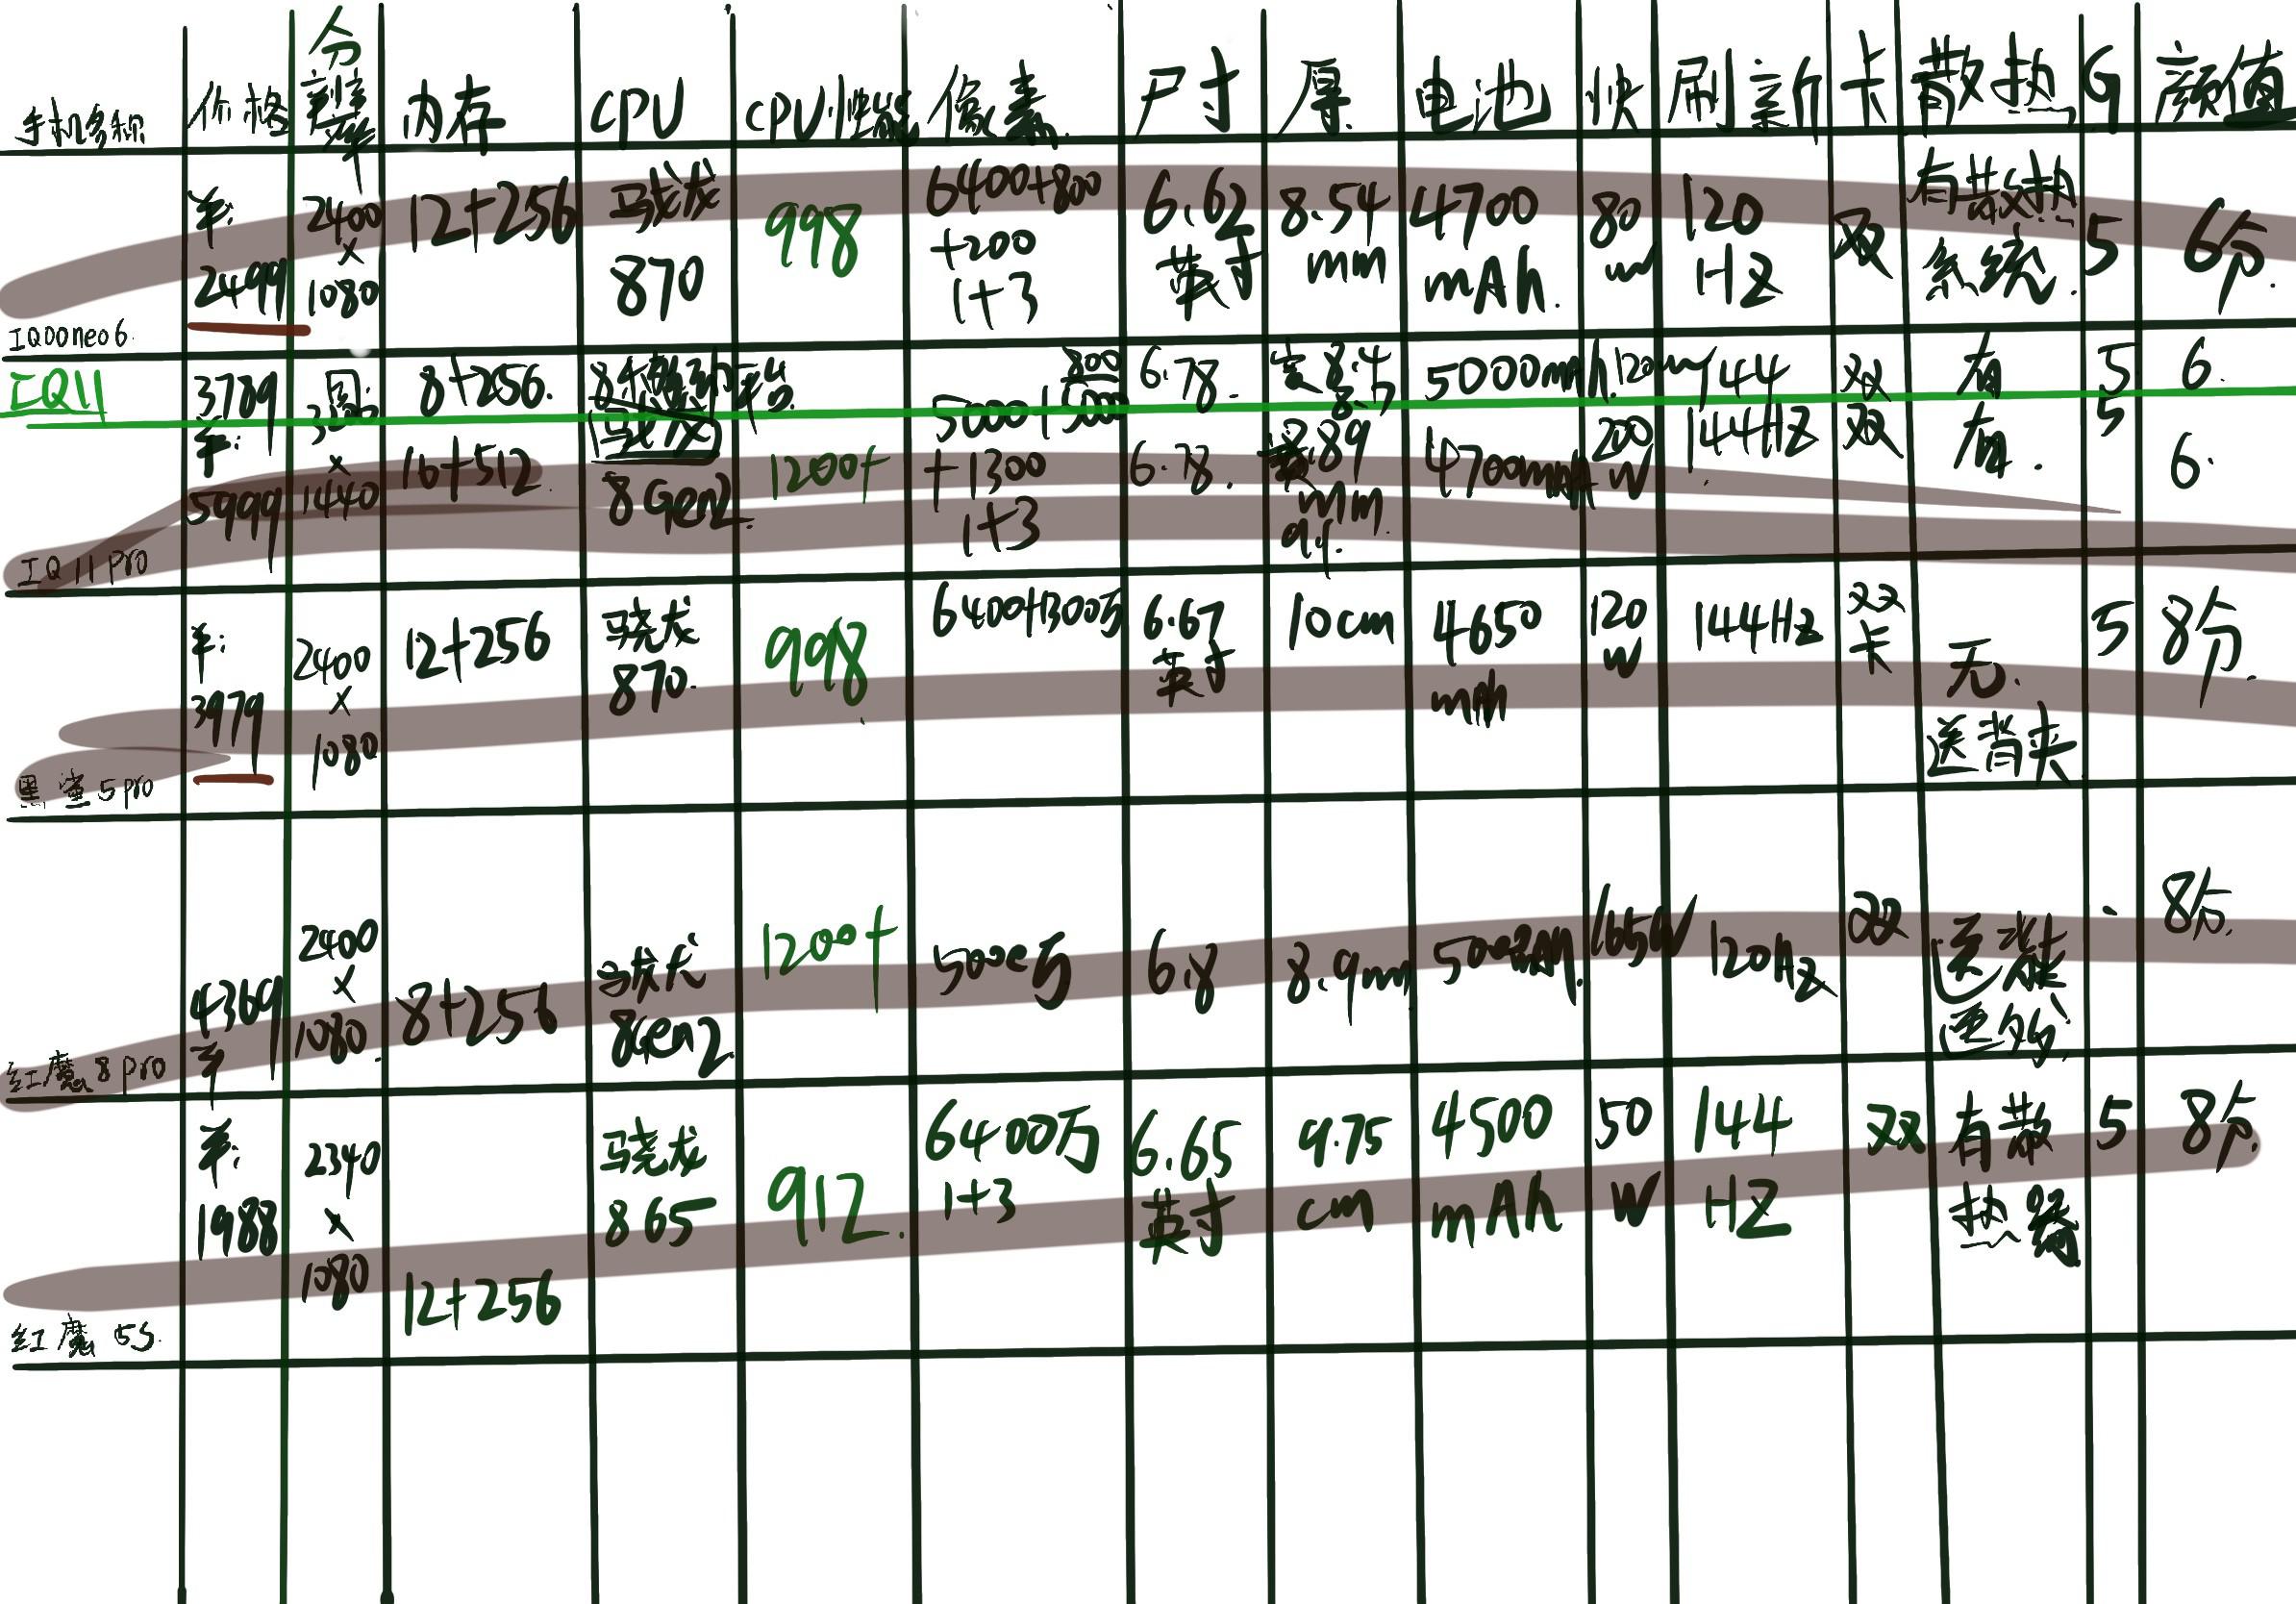 手机名称 价格 分辨率 内存 CPU CPU性能 像素 尺寸 厚 电池 快 刷新 卡 散热 G 颜值
IQOOneo6 羊: 2499 2400 x 1080 12+256 骁龙 870 998 6400+800 +200 1+3 6.62 英寸 8.54 mm 4700 mAh. 80 w 120 HZ 双 有散热 系统. 5 6分.
IQ11 3789 8+256. 800 6.78. 8.4 8.7 5000mAh 120w 144 双 有 5 6.
IQ11pro 羊: 5999 x 1440 16+512 8Gen2 1200+ 5000+5000 +1300 1+3 6.78. 89 mm 4700mAh 200 W 144HZ 双 有. 5 6.
黑鲨5pro 羊: 3979 2400 x 1080 12+256 骁龙 870. 998 6400+1300万 6.67 英寸 10cm 4650 mAh 120 W 144Hz 双 卡 无. 送背夹 5 8分.
红魔8pro 4369 羊 2400 x 1080. 8+256 骁龙 8Gen2 1200+ 5000万 6.8 8.9m 165W 120Hz 双 8分.
红魔 5S. 羊: 1988 2340 x 1080 12+256 骁龙 865 912. 6400万 1+3 6.65 英寸 9.75 cm 4500 mAh 50 W 144 HZ 双 有散 热 5 8分.